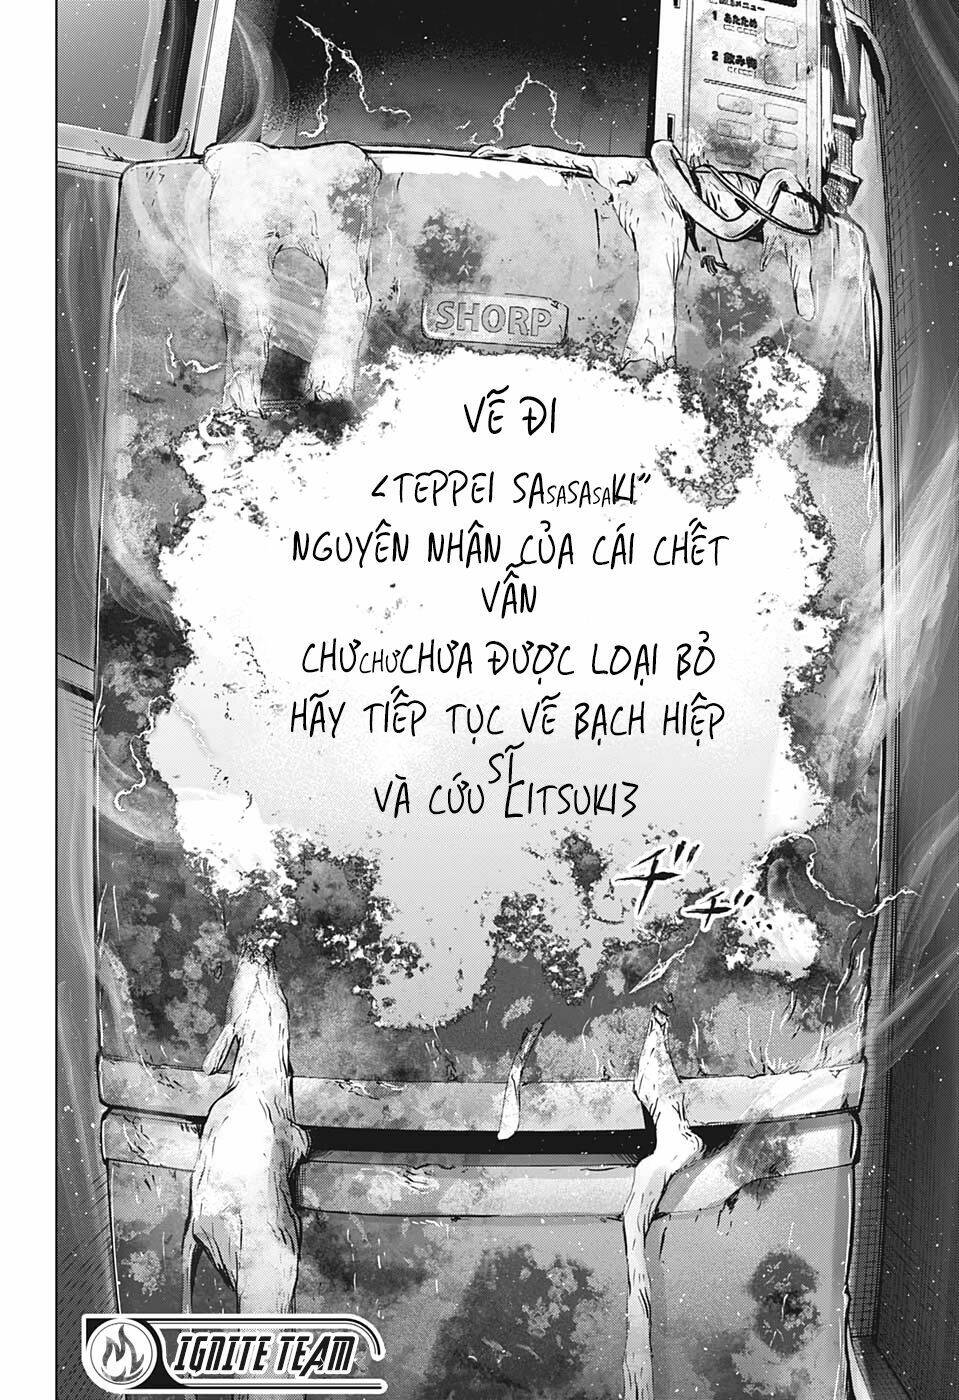 メニュー
1 あたため
2 飲み物
SHORP
VẼ ĐI
<TEPPEI SASASASAKI"
NGUYÊN NHÂN CỦA CÁI CHẾT
VẪN
CHƯCHƯCHƯA ĐƯỢC LOẠI BỎ
HÃY TIẾP TỤC VẼ BẠCH HIỆP
SĨ
VÀ CỨU [ITSUKI3
ヂ"
ヂヂ...
IGNITE TEAM